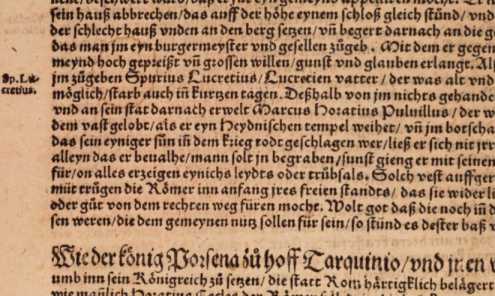 sein hauß abbrechen/das auff der höhe eynem schloß gleich stünd/
der schlecht hauß vnden an den berg setzen/vñ begert darnach an die
das man jm eyn burgermeyster vnd gesellen zůgeb. Mit dem er
meynd hoch gepreißt vñ grossen willen/gunst vnd glauben erlangt.
Sp. Lu-
cretius.
jm zůgeben Spurius Lucretius/Lucrecien vatter/der was alt vnd
möglich/starb auch iñ kurtzen tagen. Deßhalb von jm nichts
vnd an sein stat darnach erwelt Marcus Horatius Puluillus/der
dem vast gelobt/als er eyn Heydnischen tempel weihet/vñ jm
das sein eyniger sün iñ dem krieg todt geschlagen wer/ließ er sich nit
alleyn das er beualhe/mann solt jn begraben/sunst gieng er mit seinem
für/on alles erzeigen eynichs leydts oder trübsals. Solch vest
můt trůgen die Römer inn anfang jres freien standts/das sie wider
oder gůt von dem rechten weg füren mocht. Wolt got daß die noch iñ
sen weren/die dem gemeynen nutz sollen für sein/so stünd es dester baß
Wie der könig Porsena zů hoff Tarquinio/vnd jnen
umb inn sein Königreich zů setzen/die statt Rom härtigklich
wie mañlich Horatius Cocles der